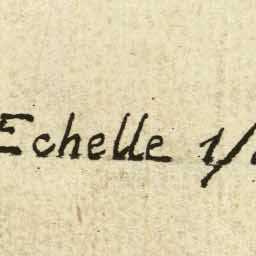 Echelle 1/